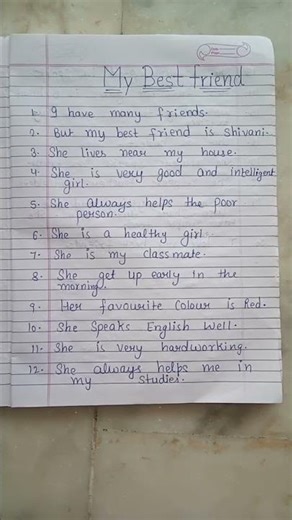 My Best friend
1. I have many friends.
2. But my best friend is Shivani.
3. She lives near my house.
4. She is very good and intelligent
girl.
5. She always helps the poor
person.
6. She is a healthy girl.
7. She is my classmate.
8. She get up early in the
morning.
9. Her favourite colour is Red.
10. She Speaks English Well.
11. She is very hardworking.
12. She always helps me in
my studies.